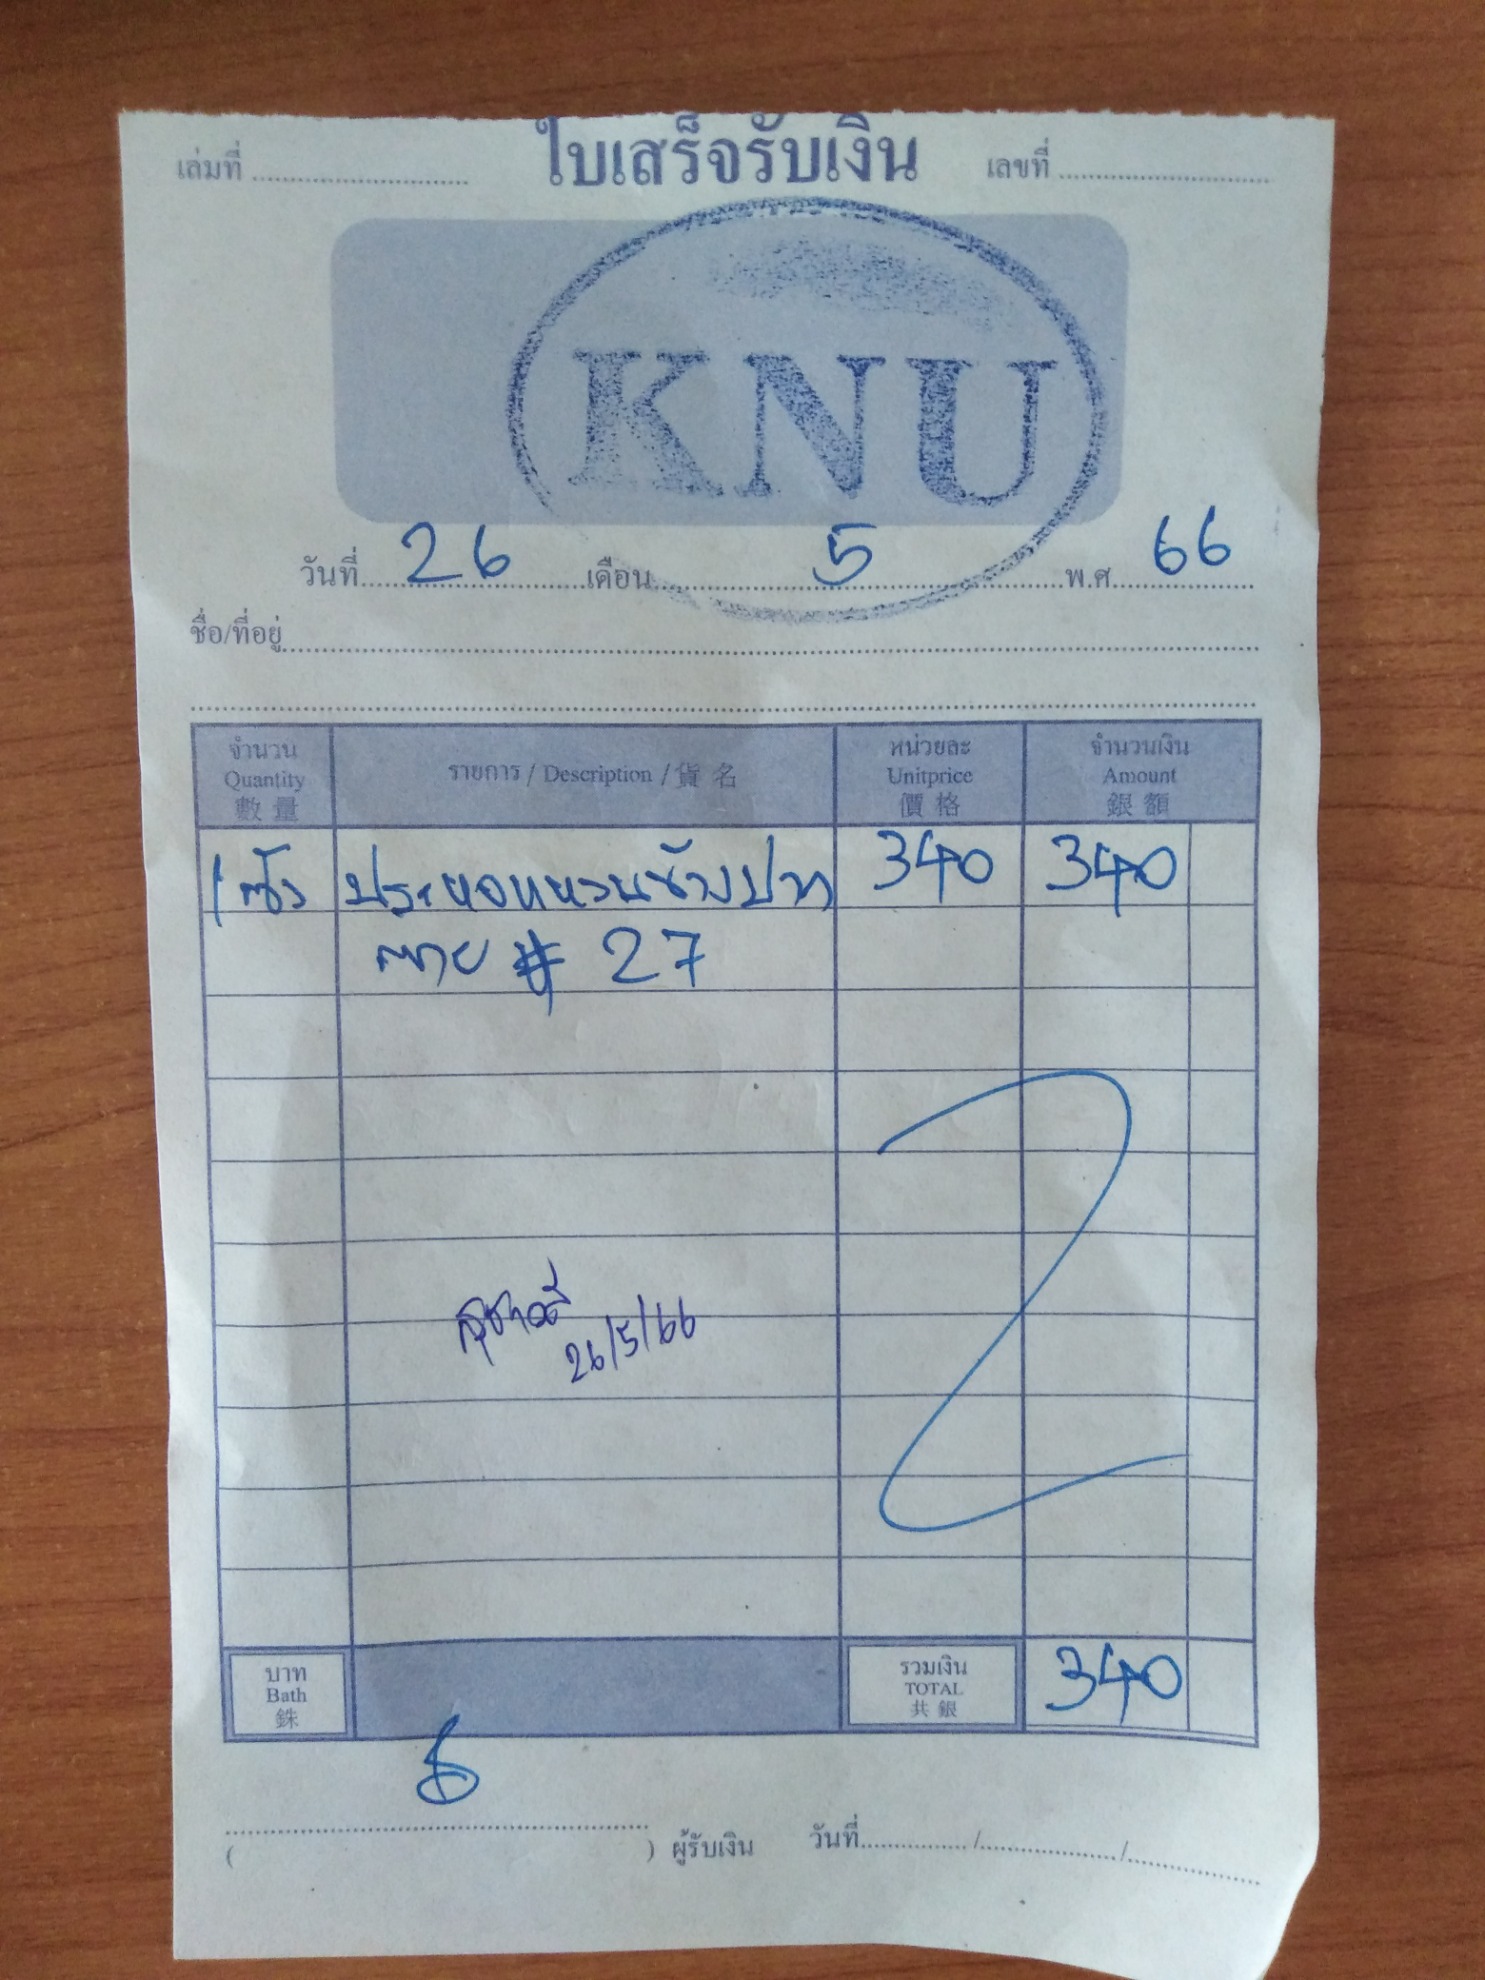 ใบเสร็จรับเงิน
เล่มที่ เลขที่
KNU
วันที่ 26 เดือน 5 พ.ศ. 66
ชื่อ/ที่อยู่
จำนวน รายการ / Description / 貨名 หน่วยละ จำนวนเงิน
Quantity Unitprice Amount
數量 價格 銀額
1 ตัว ประแจแหวนข้างปาก 340 340
ตาย # 27
26/5/66
บาท รวมเงิน 340
Bath TOTAL
銖 共銀
( ) ผู้รับเงิน วันที่ / /